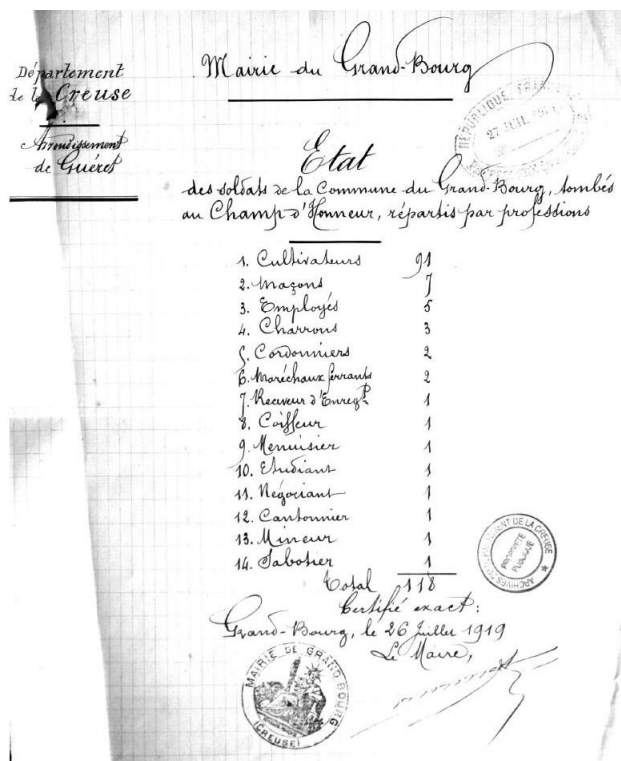 Département
de la Creuse
Arrondissement
de Guéret
Mairie du Grand-Bourg
RÉPUBLIQUE FRAN
27 JUIL.
Etat
des soldats de la Commune du Grand-Bourg, tombés
au Champ d'Honneur, répartis par professions
1. Cultivateurs 91
2. Maçons 7
3. Employés 5
4. Charrons 3
5. Cordonniers 2
6. Maréchaux ferrants 2
7. Receveur d'Enregt. 1
8. Coiffeur 1
9. Menuisier 1
10. Etudiant 1
11. Négociant 1
12. Cantonnier 1
13. Mineur 1
14. Sabotier 1
Total 118
ARCHIVES DÉPARTEMENT DE LA CREUSE
PROPRIÉTÉ
PUBLIQUE
Certifié exact :
Grand-Bourg, le 26 Juillet 1919
Le Maire,
MAIRIE DE GRAND BOURG
(CREUSE)